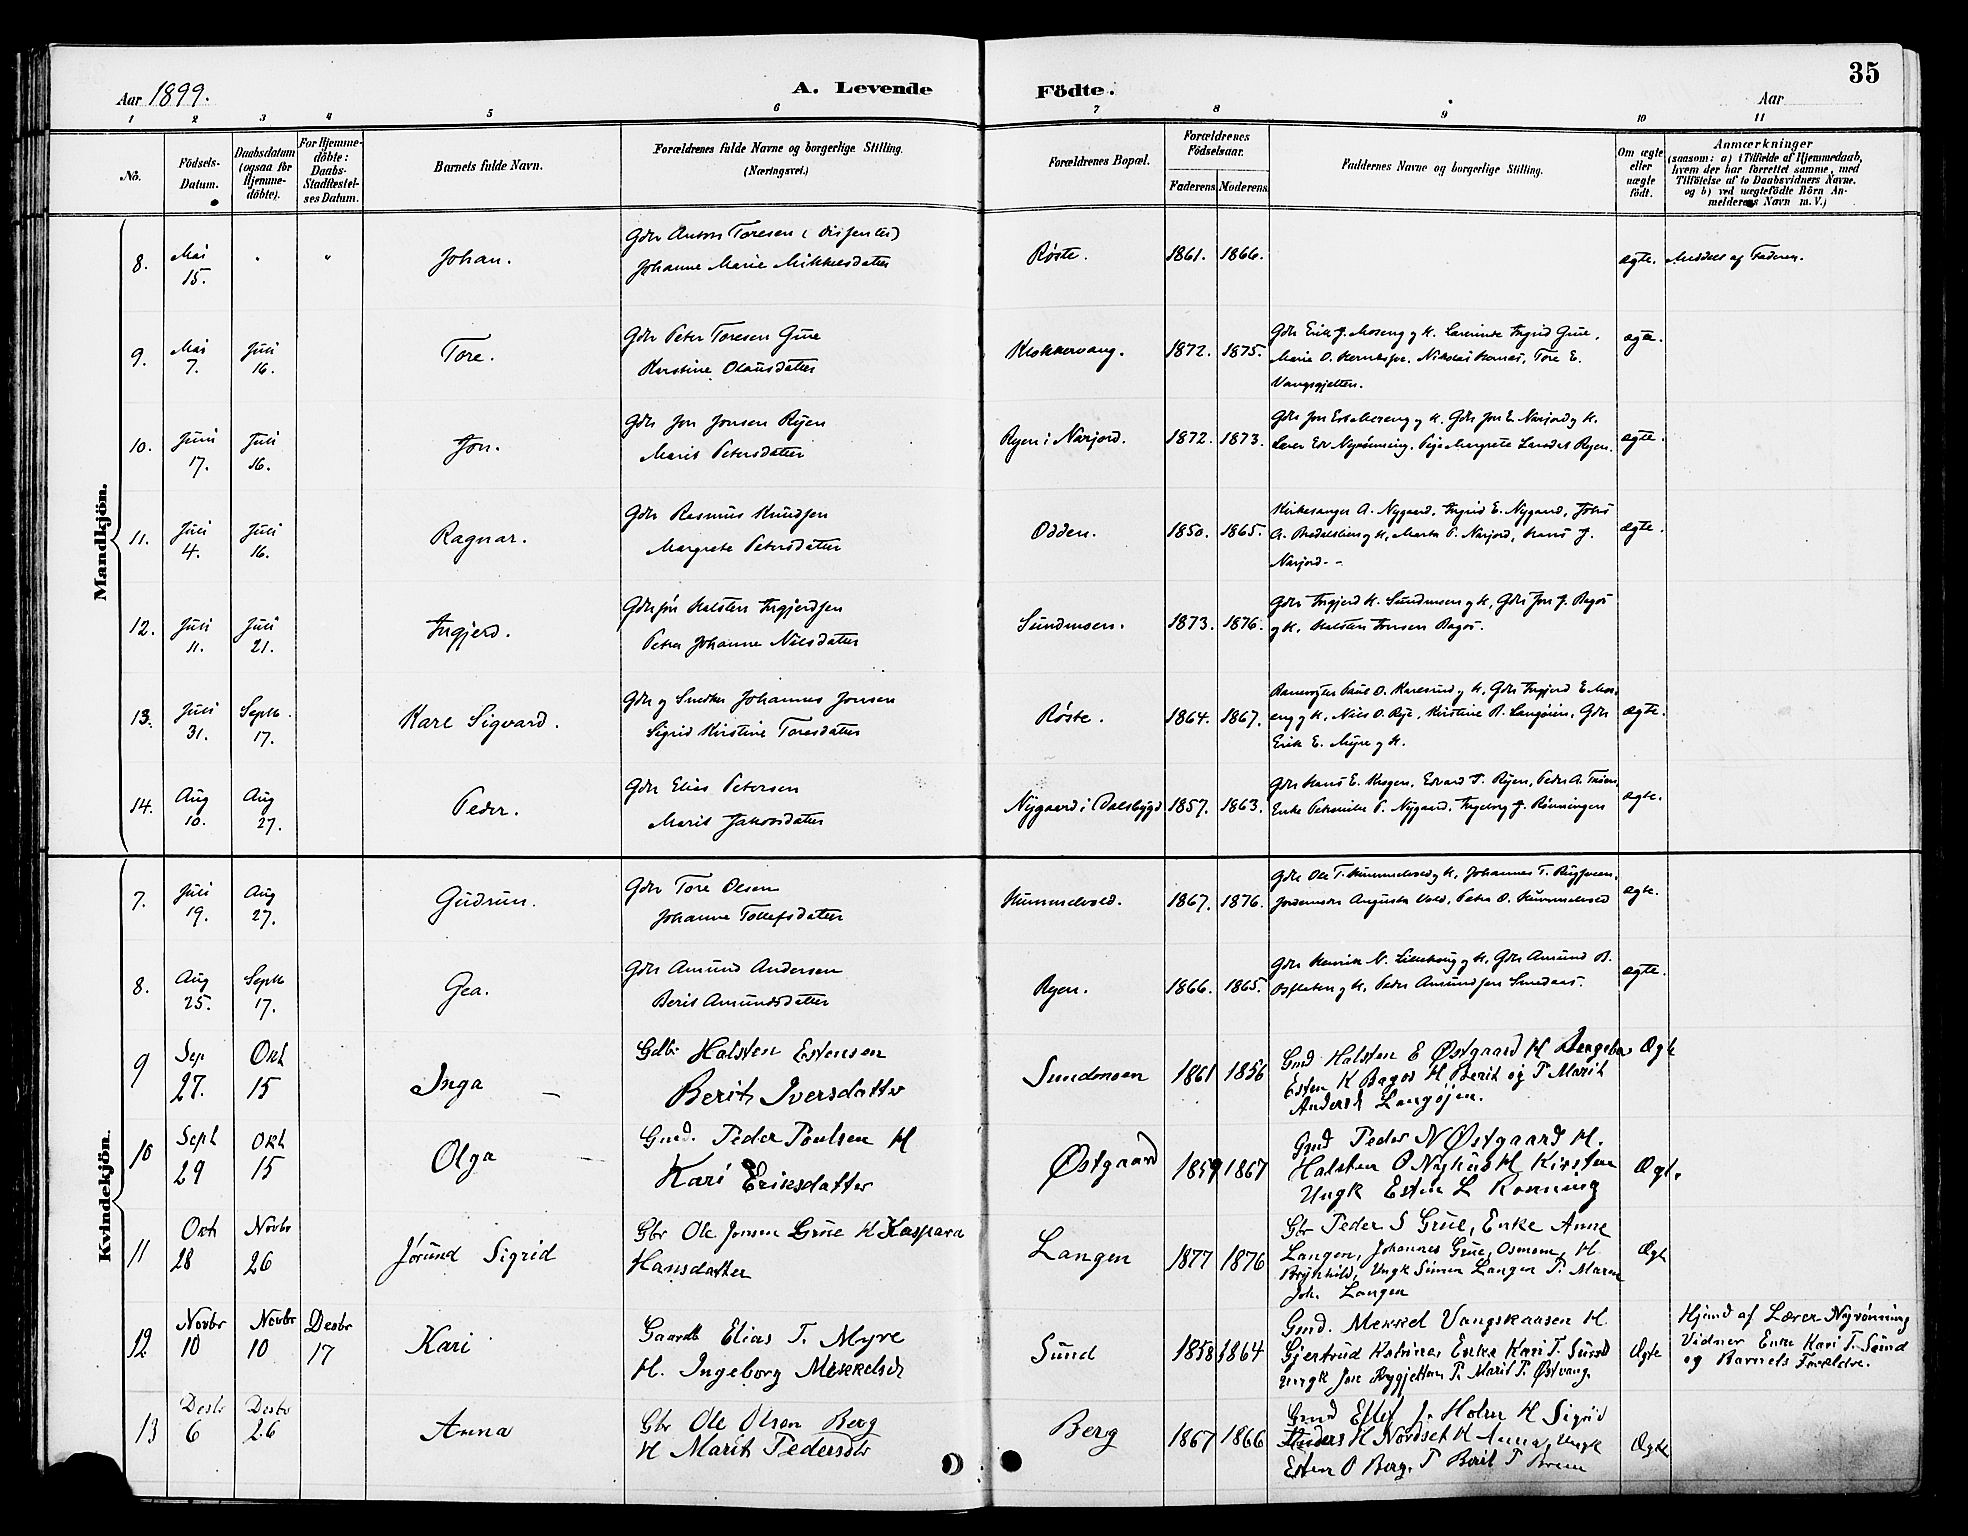 35
Aar 1899.
A. Levende Födte.
Aar
1 2 3 4 5 6 7 8 9 10 11
No.
Födsels-Datum.
Daabsdatum (ogsaa for Hjemme-döbte).
For Hjemme-döbte: Daabs-Stadfæstel-ses Datum.
Barnets fulde Navn.
Forældrenes fulde Navne og borgerlige Stilling.
(Næringsvei.)
Forældrenes Bopæl.
Forældrenes Födselsaar.
Faderens. Moderens.
Faddernes Navne og borgerlige Stilling.
Om ægte eller uægte født.
Anmærkninger
(saasom: a) i Tilfælde af Hjemmedaab,
hvem der har forrettet samme, med
Tilföielse af to Daabsvidners Navne,
og b) ved uægtefödte Börn An-
melderens Navn m. V.)
Mandkjön.
8. Mai 15. Johan.
Gdbr Anton Toresen (Dissenter)
Johanne Marie Mikkelsdatter
Røste. 1861. 1866. ægte. Meddelt af Faderen.
9. Mai 7. Juli 16. Tore.
Gdbr Peter Toresen Grue
Kirstine Olausdatter
Klokkervang. 1872. 1875.
Gdbr Erik J. Moseng og H. Lærerinde Ingrid Grue,
Tore E.
Vangsgjelten.
ægte.
10. Juni 17. Juli 16. Jon.
Gdbr Jon Jonsen Ryen
Marit Petersdatter
Ryen i Narjord. 1872. 1873.
Gdbr Jon E. Narjord og H.
Lærer Edv Nyrønning, Pige Margrete Larsdt Ryen.
ægte.
11. Juli 4. Juli 16. Ragnar.
Gdbr Rasmus Knudsen
Margrete Petersdatter
Odden. 1850. 1865.
Kirkesanger A. Nygaard, Ingrid E. Nygaard,
Marta P. Narjord, Hans J.
Narjord.
ægte.
12. Juli 11. Juli 21. Ingjerd.
Gdbrsøn Halsten Ingjerdsen
Petra Johanne Nilsdatter
Sundmoen. 1873. 1876.
Gdbr Ingjerd H. Sundmoen og H, Gdbr Jon J. Bagøs
og H, Halsten Jonsen Bagøs.
ægte.
13. Juli 31. Septb. 17. Karl Sigvard.
Gdbr og Snedker Johannes Jonsen
Sigrid Kirstine Toresdatter
Røste. 1864. 1867.
Banevogter Paul O. Karlsund og H, Gdbr Ingjerd E. Mos-
eng og H, Nils O. Rye, Kirstine R. Langøien, Gdbr
Erik E. Myre og H.
ægte.
14. Aug 10. Aug 27. Peder.
Gdbr Elias Petersen
Marit Jakobsdatter
Nygaard i Dalsbygd 1857. 1863.
Gdbr Hans E. Krogen, Edvard J. Ryen, Peder A. Trøen,
Enke Petronille P. Nygaard, Ingeborg J. Rønningen
ægte.
Kvindekjön.
7. Juli 19. Aug 27. Gudrun.
Gdbr Tore Olsen
Johanne Tollefsdatter
Hummelvold. 1867. 1876.
Gdbr Ole T. Hummelvold og H, Johannes T. Rugsveen,
Jordemoder Augusta Vold, Petra O. Hummelvold
ægte.
8. Aug 25. Septb 17. Gea.
Gdbr Amund Andersen
Berit Amundsdatter
Ryen. 1866. 1865.
Gdbr Henrik N. Lillehaug og H, Gdbr Amund B.
Osfloten og H, Peder Amundsen Smedaas.
ægte.
9 Sep 27. Okt 15 Inga
Gdbr Halsten Estensen
Berit Iversdatter
Sundmoen 1861 1856
Gmd Halsten E Østgaard H Ingebor
Esten K Bagøs H Berit og P Marit
Andersd Langøjen.
Ægte
10 Sept 29 Okt 15 Olga
Gmd. Peder Poulsen H
Kari Eriksdatter
Østgaard 1859 1867
Gmd Peder N Østgaard H.
Halsten O Nyhus H Kirsten
Ungk Esten L Rønning
Ægte.
11 Okt 28 Novbr 26 Jørund Sigrid
Gbr Ole Jonsen Grue H Kaspara
Hansdatter
Langen 1877 1876
Gbr Peder S Grue, Enke Anne
Langen, Johannes Grue, Osmoen, H
Brynhild, Ungk Simen Langen P. Maren
Joh. Langen
Ægte
12 Novbr 10 Novbr 10 Desbr 17 Kari
Gaardb Elias T. Myre
H. Ingeborg Mekkelsdr
Sund 1858 1864
Gmd. Mekkel Vangskaasen H.
Gjertrud Katrine, Enke Kari T. Sund
Ungk Jon Ryggjetten P. Marit P. Østvang.
Ægte
Hjmd af Lærer Nyrønning
Vidner Enke Kari T. Sund
og Barnets Forældre.
13 Desbr 6 Desbr 26 Anna
Gbr Ole Olsen Berg
H Marit Pedersdtr
Berg 1867 1866
Gmd Ellef J. Holm H Sigrid
Anders H Nordset H Anna, Ungk
Esten O Berg, P Berit P Breen
Ægte